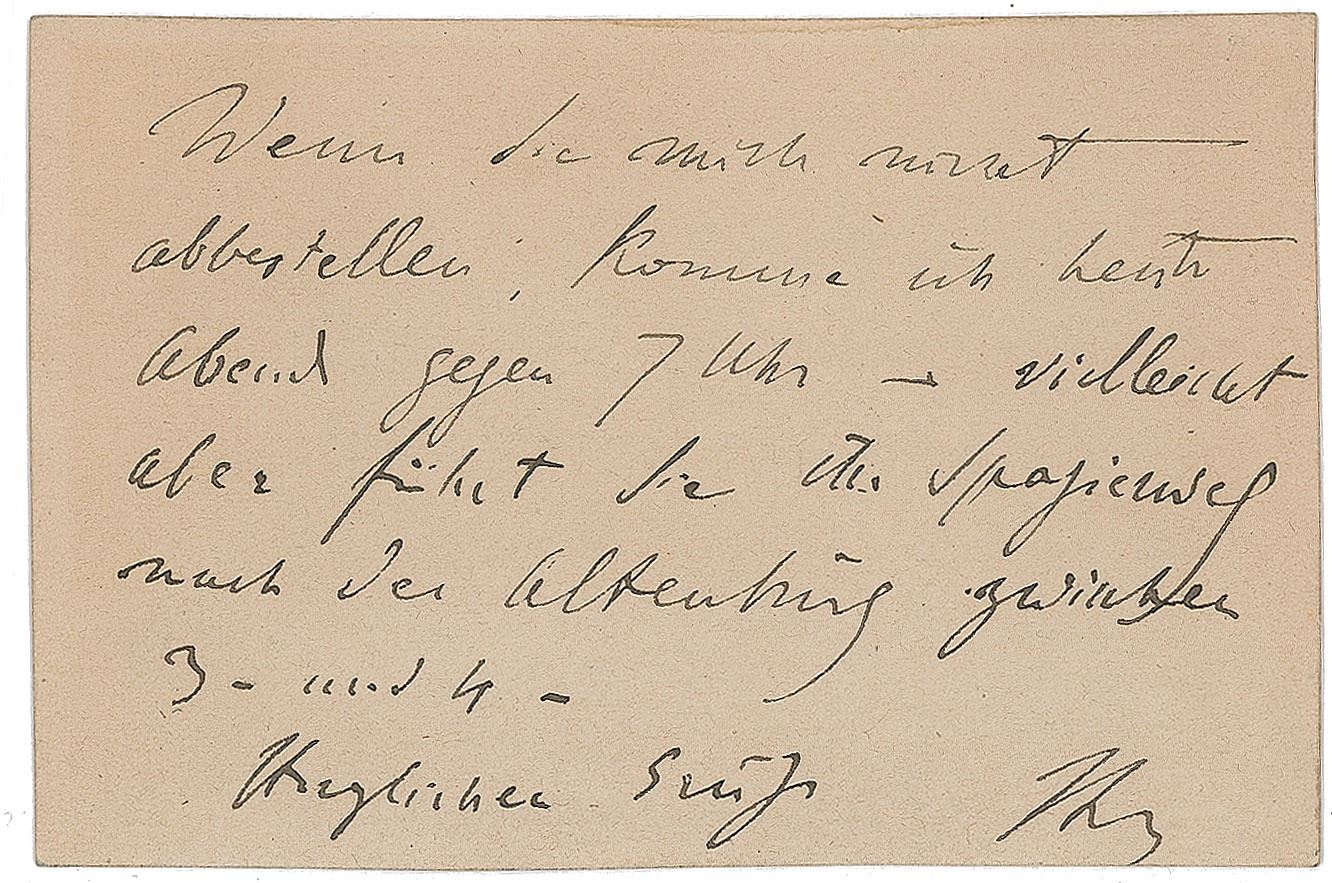 Wenn Sie mich nicht
abbestellen, komme ich heute
Abend gegen 7 Uhr – vielleicht
aber führt Sie Ihr Spazierweg
nach der Altenburg zwischen
3 - und 4 -
Herzlichen Gruß